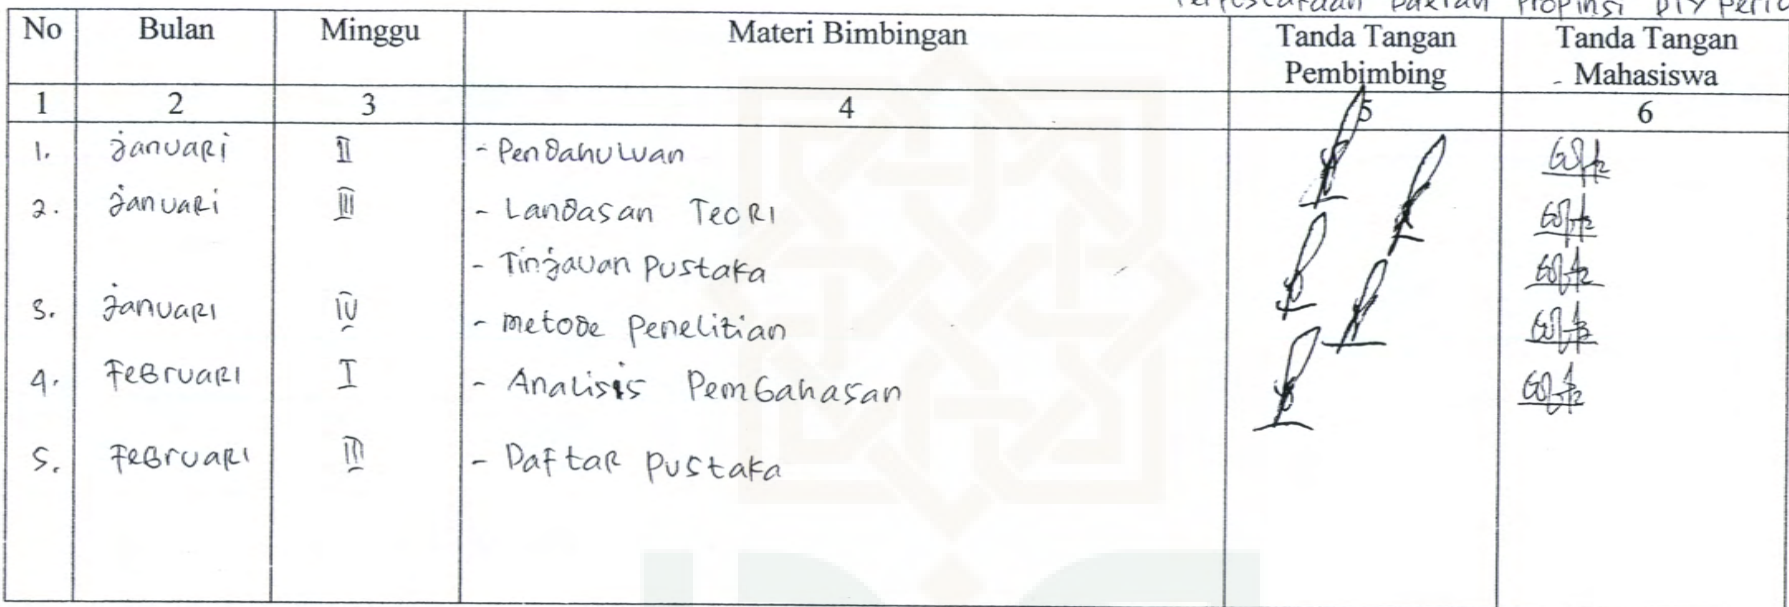 Daerah Propinsi DIY
No Bulan Minggu Materi Bimbingan Tanda Tangan Pembimbing Tanda Tangan Mahasiswa
1 2 3 4 5 6
1. Januari II - Pendahuluan
2. Januari III - Landasan Teori
- Tinjauan Pustaka
3. Januari IV - Metode Penelitian
4. Februari I - Analisis Pembahasan
5. Februari III - Daftar Pustaka